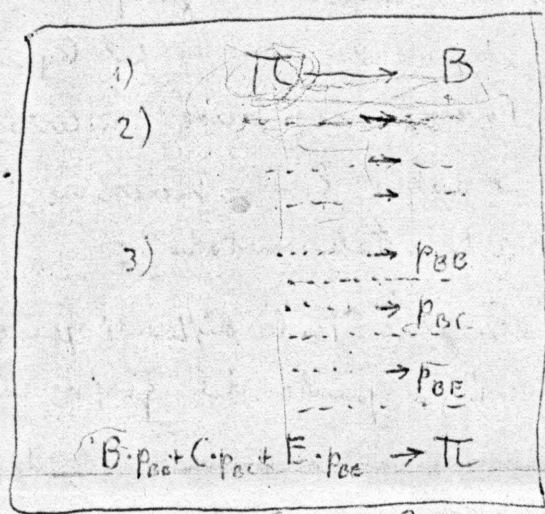 1) П → B
2) → 
→
→
3) → p_BB
→ p_BC
→ p_BE
B·p_BB + C·p_BC + E·p_BE → П